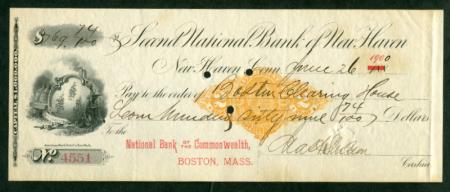 $769 74/100
Second National Bank of New Haven
New Haven Conn. June 26 1900
Pay to the order of Boston Clearing House
Seven Hundred Sixty nine 74/100 Dollars
To the
National Bank of the Commonwealth,
BOSTON, MASS.
Cashier
No. 4551